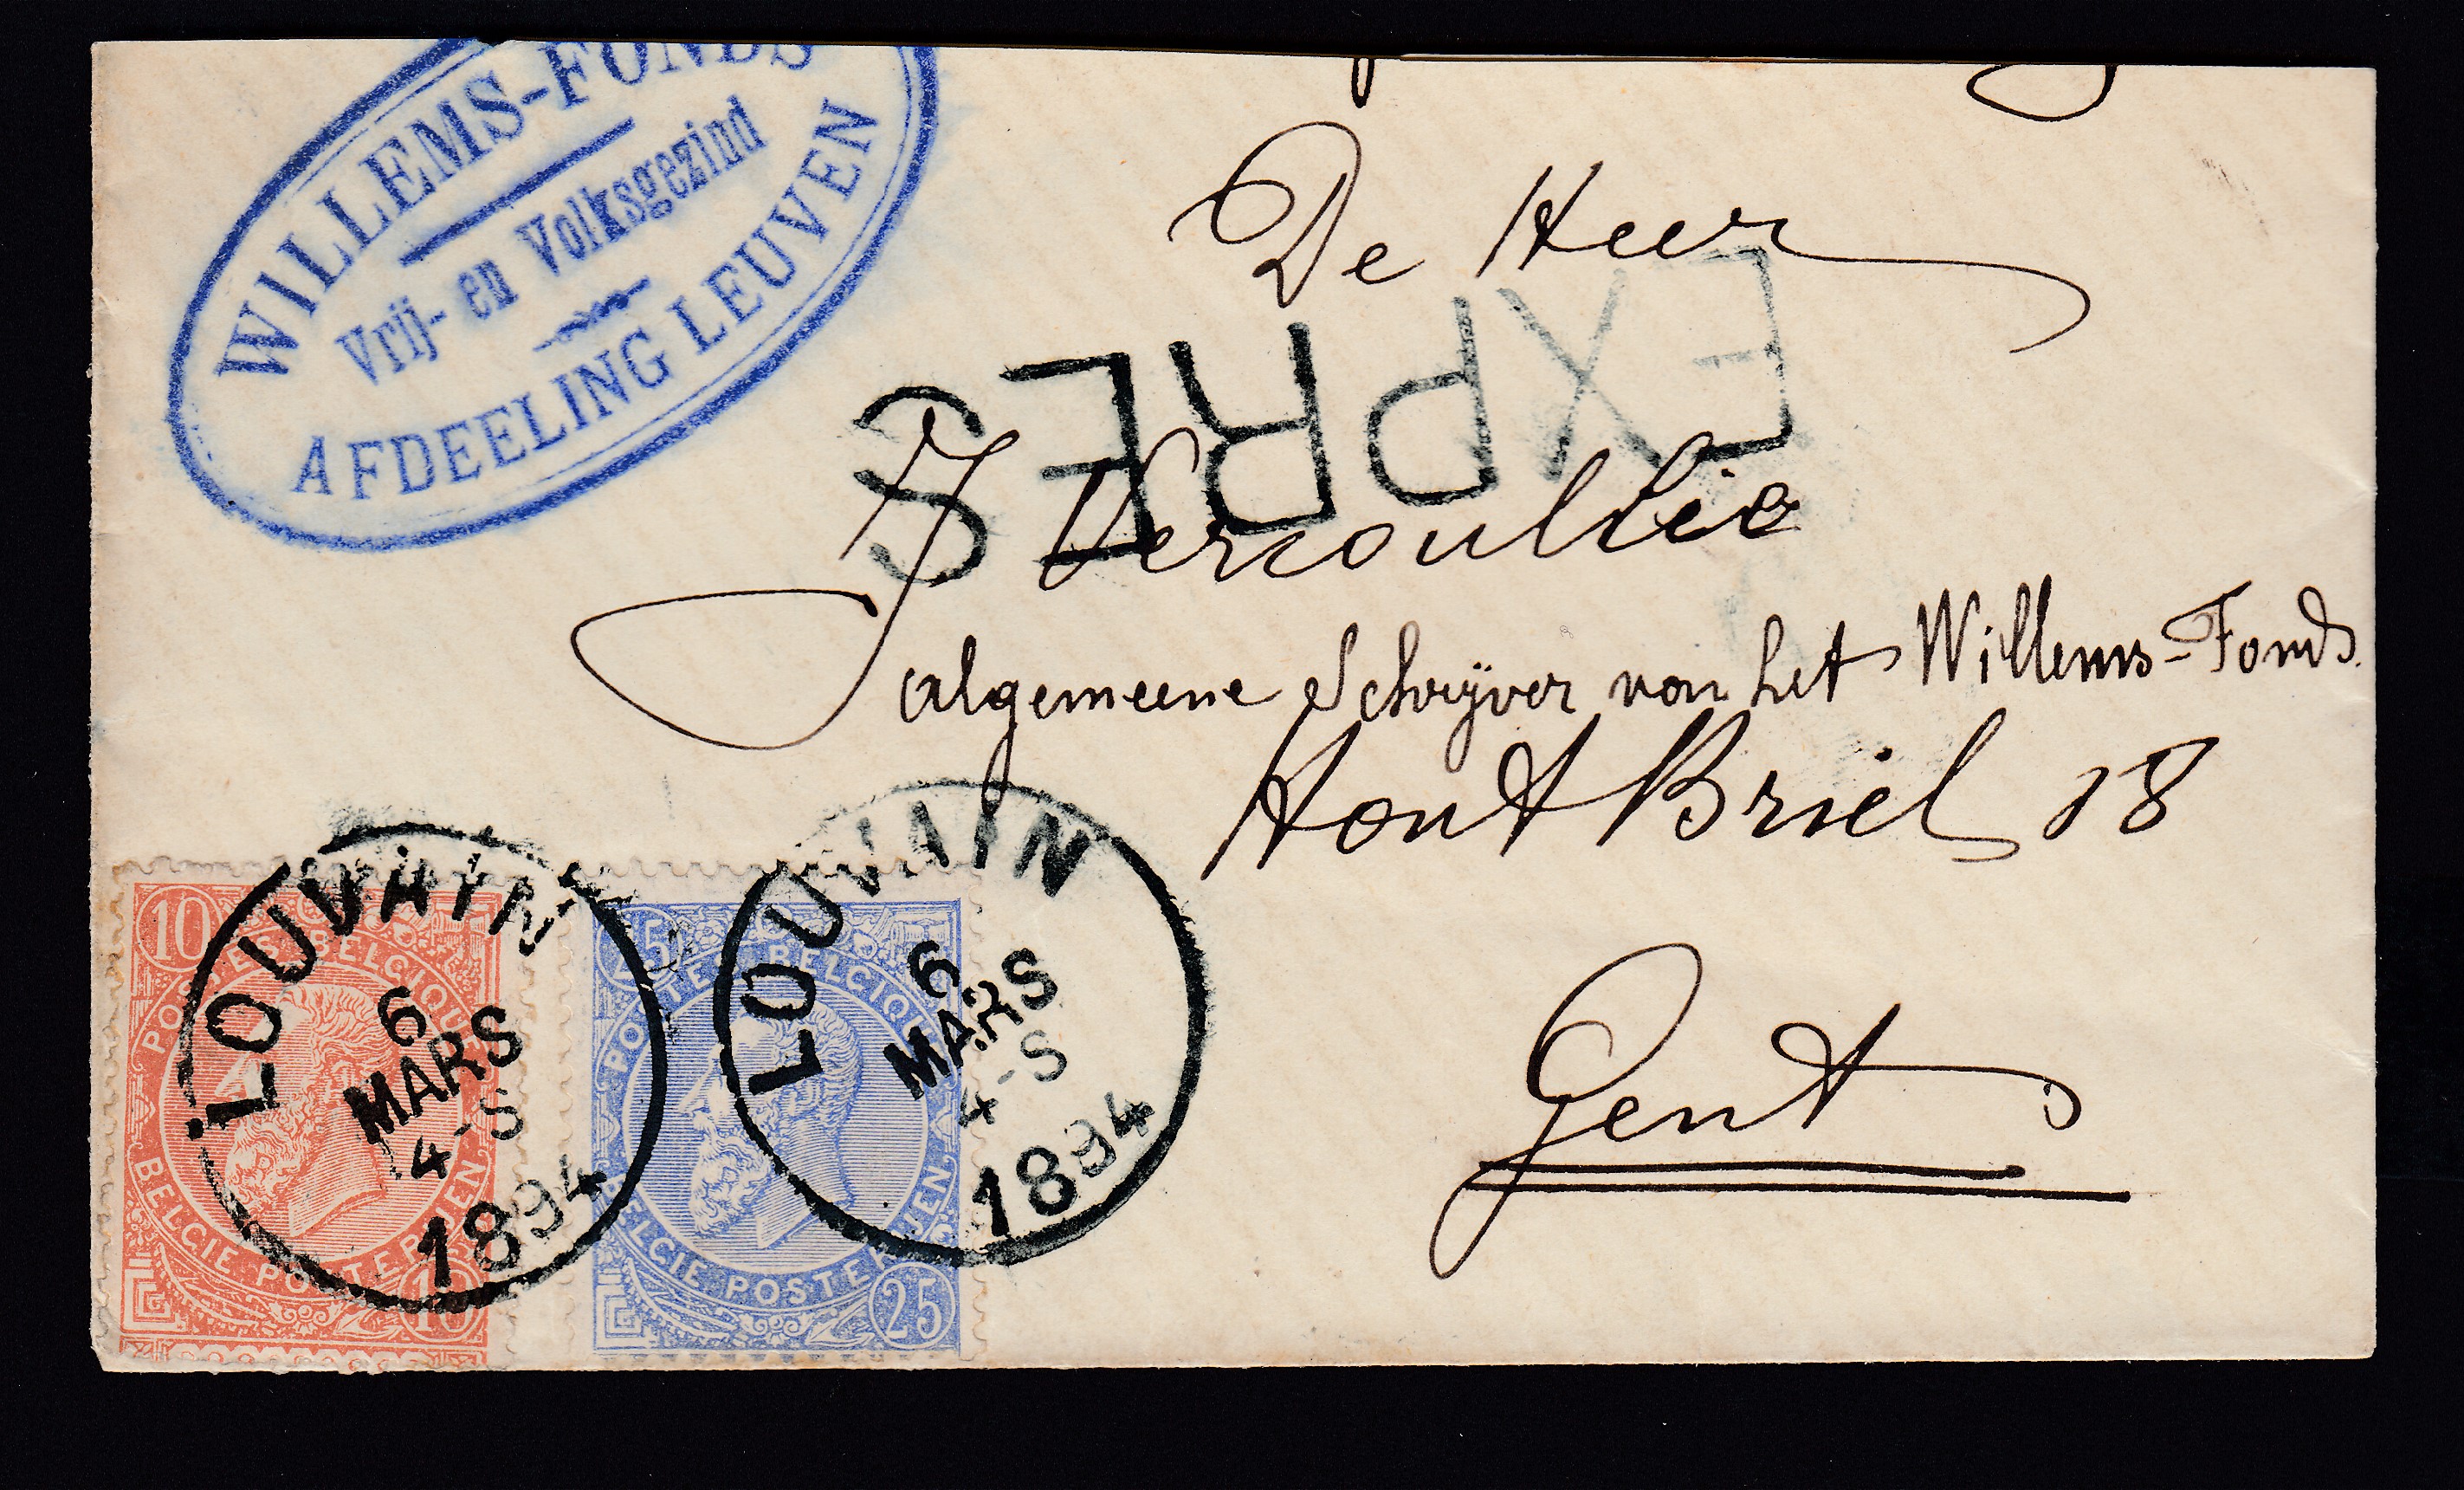 WILLEMS-FONDS
Vrij- en Volksgezind
AFDEELING LEUVEN
De Heer
EXPRES
J Vercoullie
algemeene Schrijver van het Willems-Fonds
Hout Briel 18
Gent
LOUVAIN
6
MARS
4-S
1894
LOUVAIN
6
MARS
4-S
1894
10
POSTES BELGIQUE
BELGIE POSTERIJEN
10
25
POSTES BELGIQUE
BELGIE POSTERIJEN
25